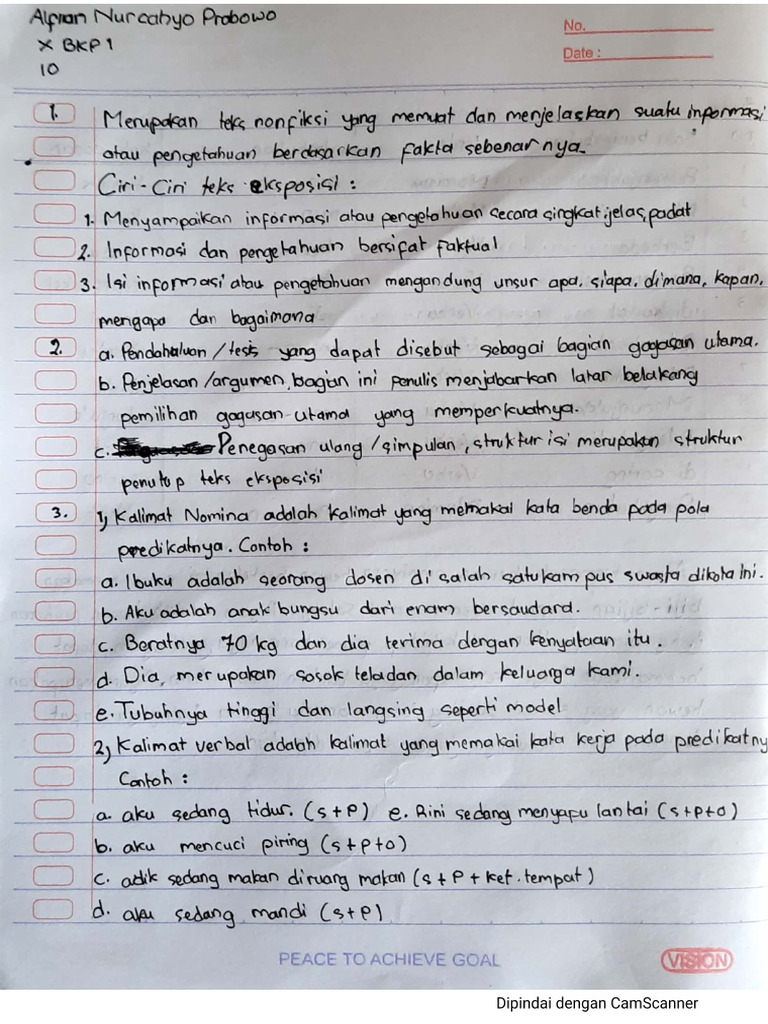 Alfian Nurcahyo Probowo
No.
X BKP 1
Date :
10
1. Merupakan teks nonfiksi yang memuat dan menjelaskan suatu informasi
atau pengetahuan berdasarkan fakta sebenarnya.
Ciri-Ciri teks eksposisi :
1. Menyampaikan informasi atau pengetahuan secara singkat, jelas, padat
2. Informasi dan pengetahuan bersifat faktual
3. Isi informasi atau pengetahuan mengandung unsur apa, siapa, dimana, kapan,
mengapa dan bagaimana
2. a. Pendahuluan / tesis yang dapat disebut sebagai bagian gagasan utama.
b. Penjelasan /argumen, bagian ini penulis menjabarkan latar belakang
pemilihan gagasan utama yang memperkuatnya.
c. Penegasan ulang /simpulan, struktur isi merupakan struktur
penutup teks eksposisi
3. 1) Kalimat Nomina adalah kalimat yang memakai kata benda pada pola
predikatnya. Contoh :
a. Ibuku adalah seorang dosen di salah satu kampus swasta dikota ini.
b. Aku adalah anak bungsu dari enam bersaudara.
c. Beratnya 70 kg dan dia terima dengan kenyataan itu.
d. Dia, merupakan sosok teladan dalam keluarga kami.
e. Tubuhnya tinggi dan langsing seperti model
2) Kalimat verbal adalah kalimat yang memakai kata kerja pada predikatny
Contoh :
a. aku sedang tidur. (s+p) e. Rini sedang menyapu lantai (s+p+o)
b. aku mencuci piring (s+p+o)
c. adik sedang makan diruang makan (s + p + ket. tempat)
d. aku sedang mandi (s+p)
PEACE TO ACHIEVE GOAL
VISION
Dipindai dengan CamScanner